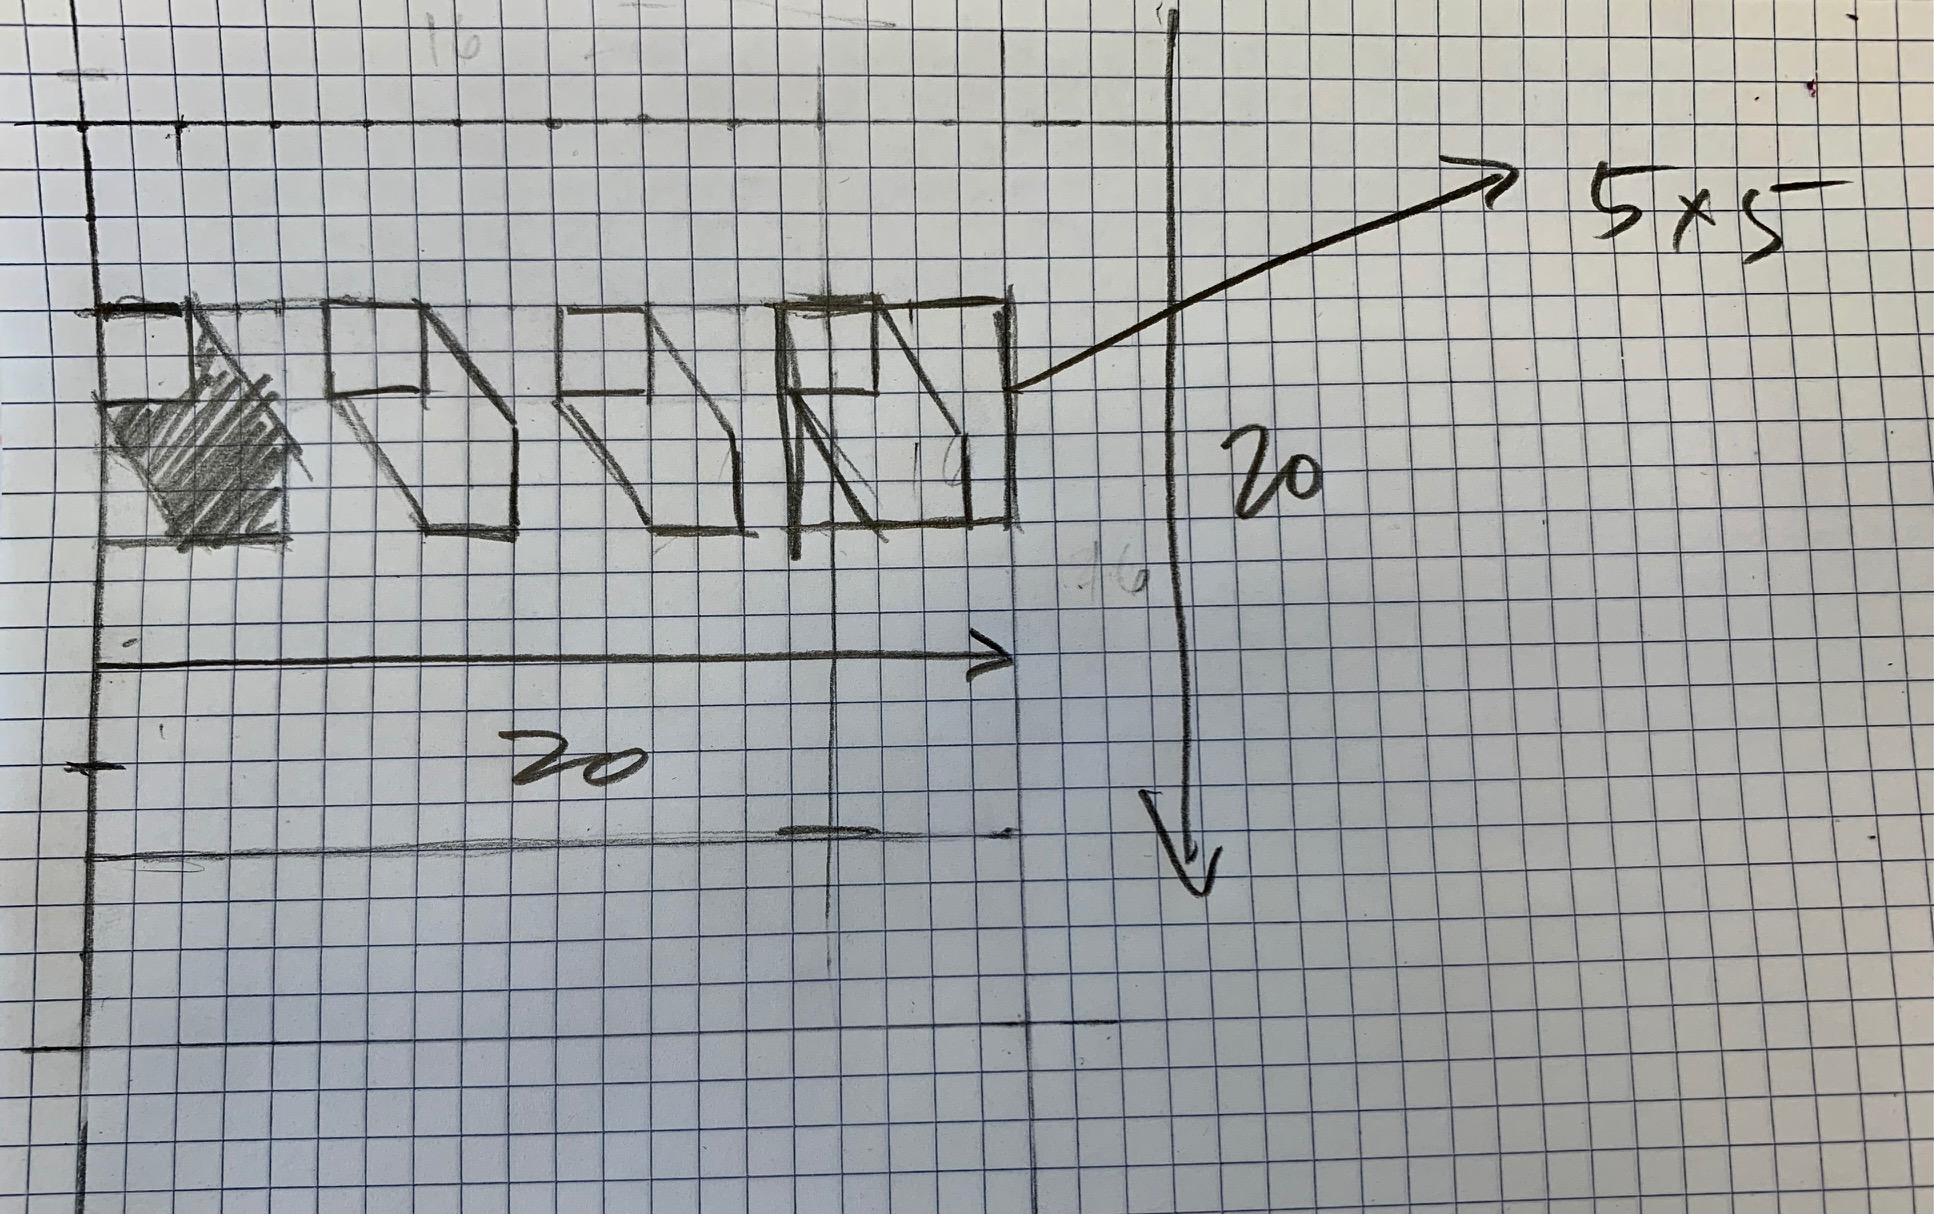 16
5x5
20
16
20